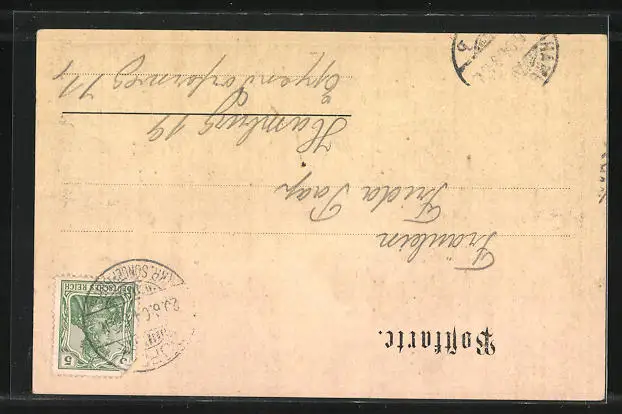 Postkarte.
5 5
DEUTSCHES REICH
Fräulein
Frida Paap
Hamburg 19
Eppendorferweg 71